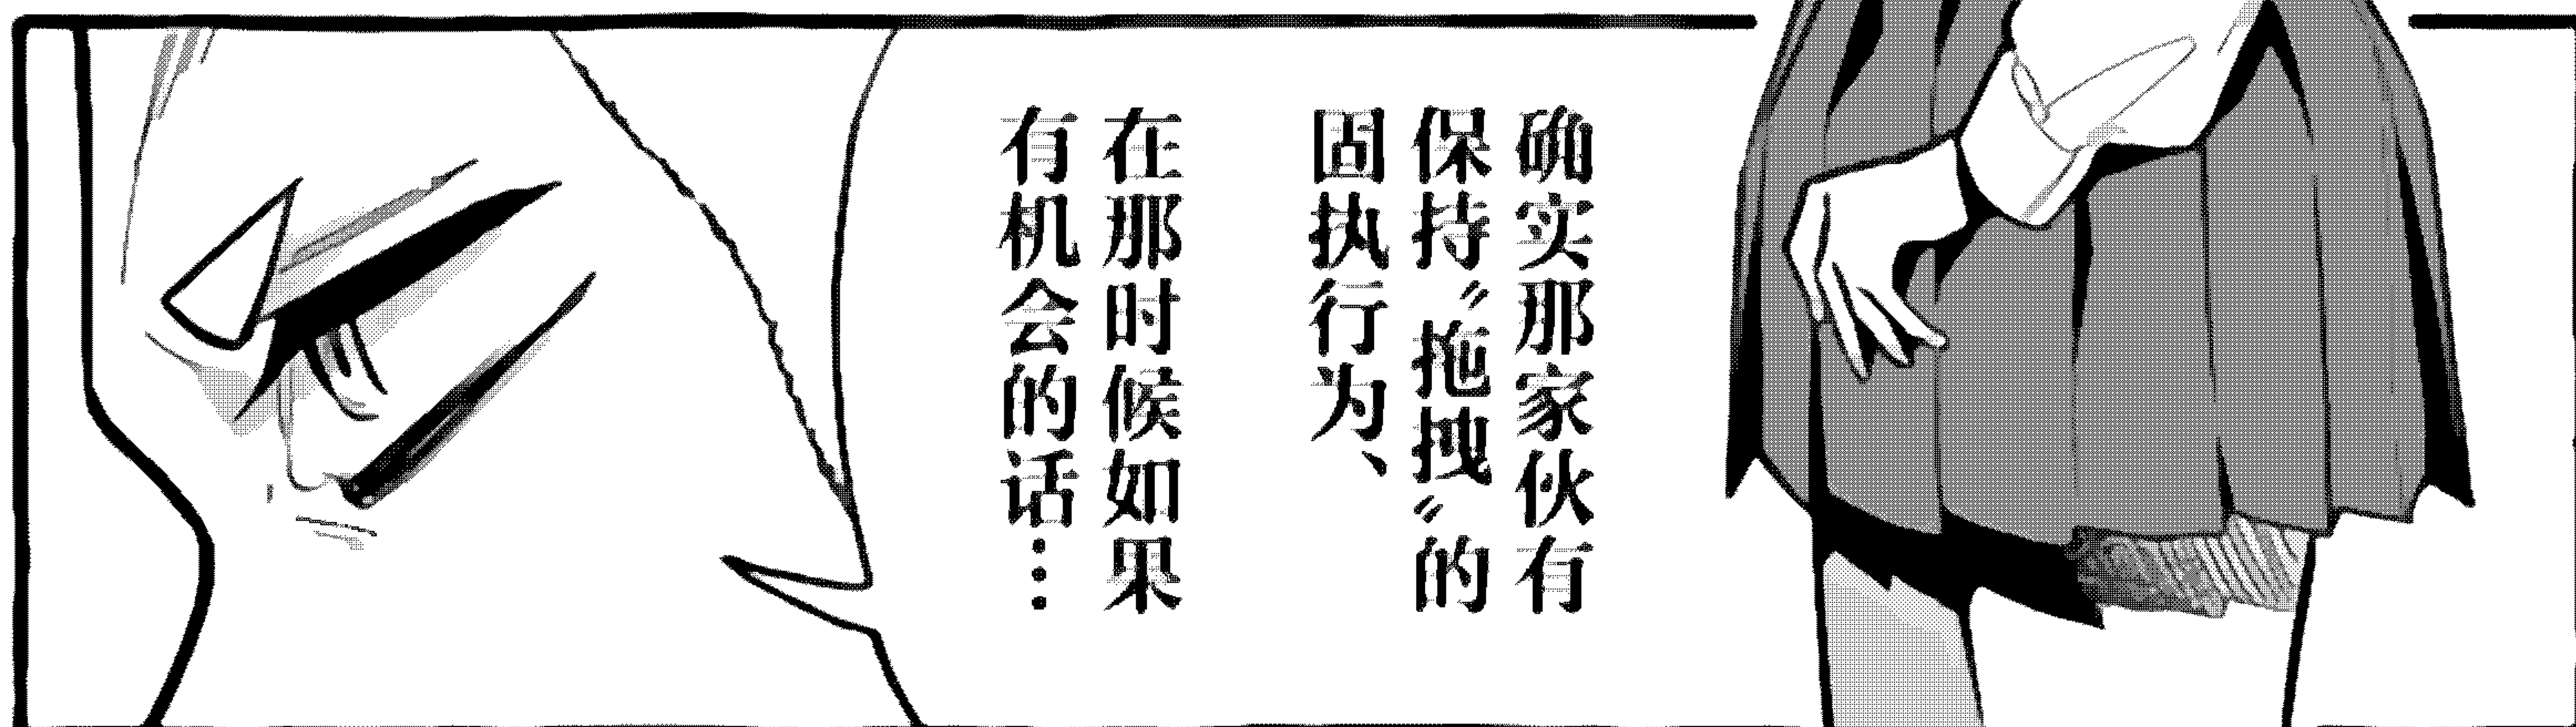 确实那家伙有
保持〝拖拽〞的
固执行为、
在那时候如果
有机会的话…